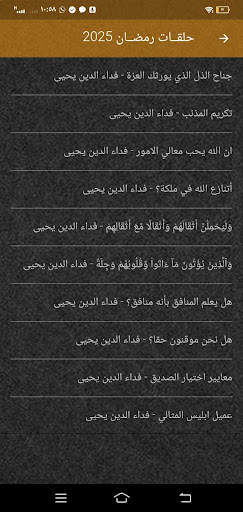 ١٠:٥٨
حلقــات رمضــان 2025
جناح الذل الذي يورثك العزة - فداء الدين يحيى
تكريم المذنب - فداء الدين يحيى
ان الله يحب معالي الامور - فداء الدين يحيى
أتنازع الله في ملكة؟ - فداء الدين يحيى
وَلَيَحْمِلُنَّ أَثْقَالَهُمْ وَأَثْقَالًا مَّعَ أَثْقَالِهِمْ - فداء الدين يحيى
وَالَّذِينَ يُؤْتُونَ مَآ ءَاتَوا۟ وَّقُلُوبُهُمْ وَجِلَةٌ - فداء الدين يحيى
هل يعلم المنافق بأنه منافق؟ - فداء الدين يحيى
هل نحن موقنون حقا؟ - فداء الدين يحيى
معايير اختيار الصديق - فداء الدين يحيى
عميل ابليس المثالي - فداء الدين يحيى